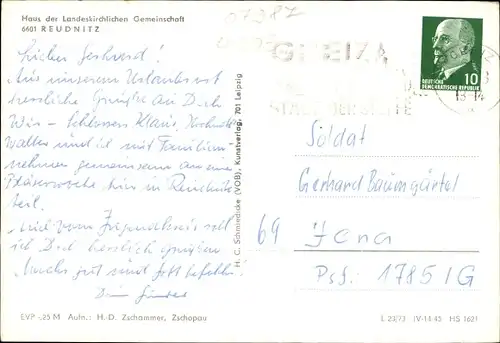 Haus der Landeskirchlichen Gemeinschaft
6601 REUDNITZ
07987
GREIZ
10
DEUTSCHE
DEMOKRATISCHE REPUBLIK
13-14
Lieber Gerhard!
Aus unserem Urlaubsort
herzliche Grüße an Dich
Wir – Klaus,
Walter und ich mit Familien
nehmen gemeinsam an einer
Bläserwoche hier in Reudnitz
teil.
Und vom Jugendkreis soll
ich Dich herzlich grüßen
Machs gut und Gott befohlen!
Dein Günter
H. C. Schmiedicke (VOB), Kunstverlag, 701 Leipzig
Soldat
Gerhard Baumgärtel
69 Jena
Psf. 1785/G
EVP -,25 M Aufn.: H.-D. Zschammer, Zschopau
L 23/73 IV-14-45 HS 1621